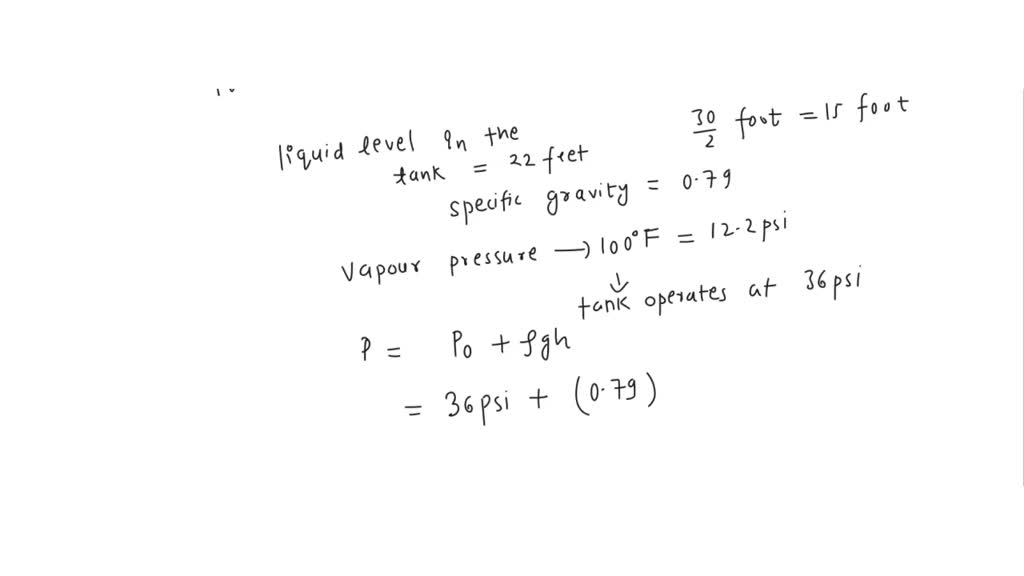 liquid level in the
tank = 22 feet
30/2 foot = 15 foot
specific gravity = 0.79
vapour pressure → 100°F = 12.2 psi
↓
tank operates at 36 psi
P = P₀ + ρgh
= 36 psi + (0.79)